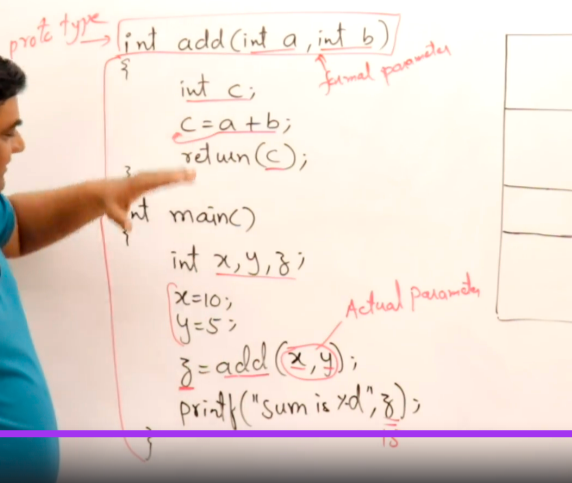 proto type
int add(int a, int b)
{
formal parameter
int c;
c=a+b;
return(c);
}
int main()
{
int x,y,z;
x=10;
y=5;
Actual Parameter
z=add(x,y);
printf("Sum is %d",z);
15
}